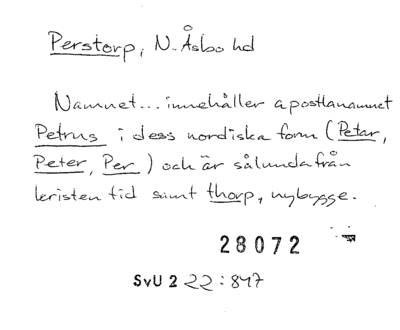 Perstorp, N. Åsbo hd
Namnet... innehåller apostlanamnet
Petrus i dess nordiska form (Petar,
Peter, Per) och är sålunda från
kristen tid samt thorp, nybygge.
28072
SvU 2 22:847